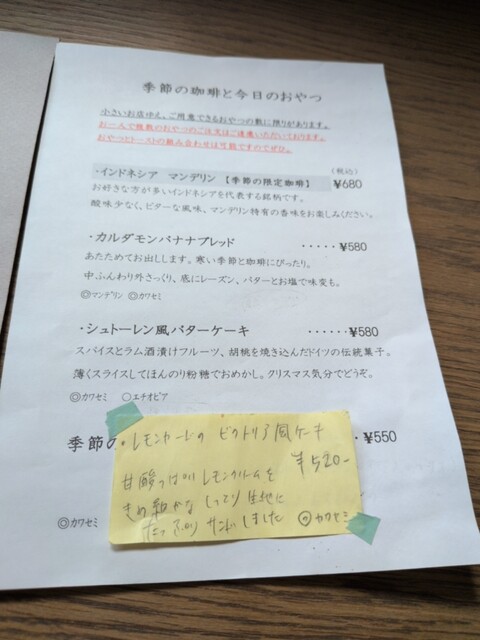 季節の珈琲と今日のおやつ
小さいお店ゆえ、ご用意できるおやつの数に限りがあります。
お一人で複数のおやつのご注文はご遠慮いただいております。
おやつとトーストの組み合わせは可能ですのでぜひ。
(税込)
・インドネシア マンデリン 【季節の限定珈琲】 ¥680
お好きな方が多いインドネシアを代表する銘柄です。
酸味少なく、ビターな風味、マンデリン特有の香味をお楽しみください。
・カルダモンバナナブレッド ・・・・・¥580
あたためてお出しします。寒い季節と珈琲にぴったり。
中ふんわり外さっくり、底にレーズン、バターとお塩で味変も。
◎マンデリン ○カワセミ
・シュトーレン風バターケーキ ・・・・・・¥580
スパイスとラム酒漬けフルーツ、胡桃を焼き込んだドイツの伝統菓子。
薄くスライスしてほんのり粉糖でおめかし。クリスマス気分でどうぞ。
◎カワセミ ○エチオピア
季節の ¥550
・レモンカードの ビクトリア風ケーキ
¥520-
甘酸っぱいレモンクリームを
きめ細かな しっとり生地に
たっぷり サンドしました ◎カワセミ
◎カワセミ